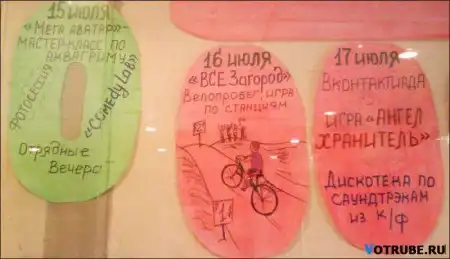 15 июля
«Мега аватар»-
мастер-класс по
аквагриму
Фотосессия
«ComedyLab»
Отрядные
Вечера
16 июля
«ВСЕ Загород»
Велопробег, игра
по станциям
17 июля
Вконтактиада
игра «Ангел
хранитель»
Дискотека по
саундтрэкам
из к/ф
Votrube.ru